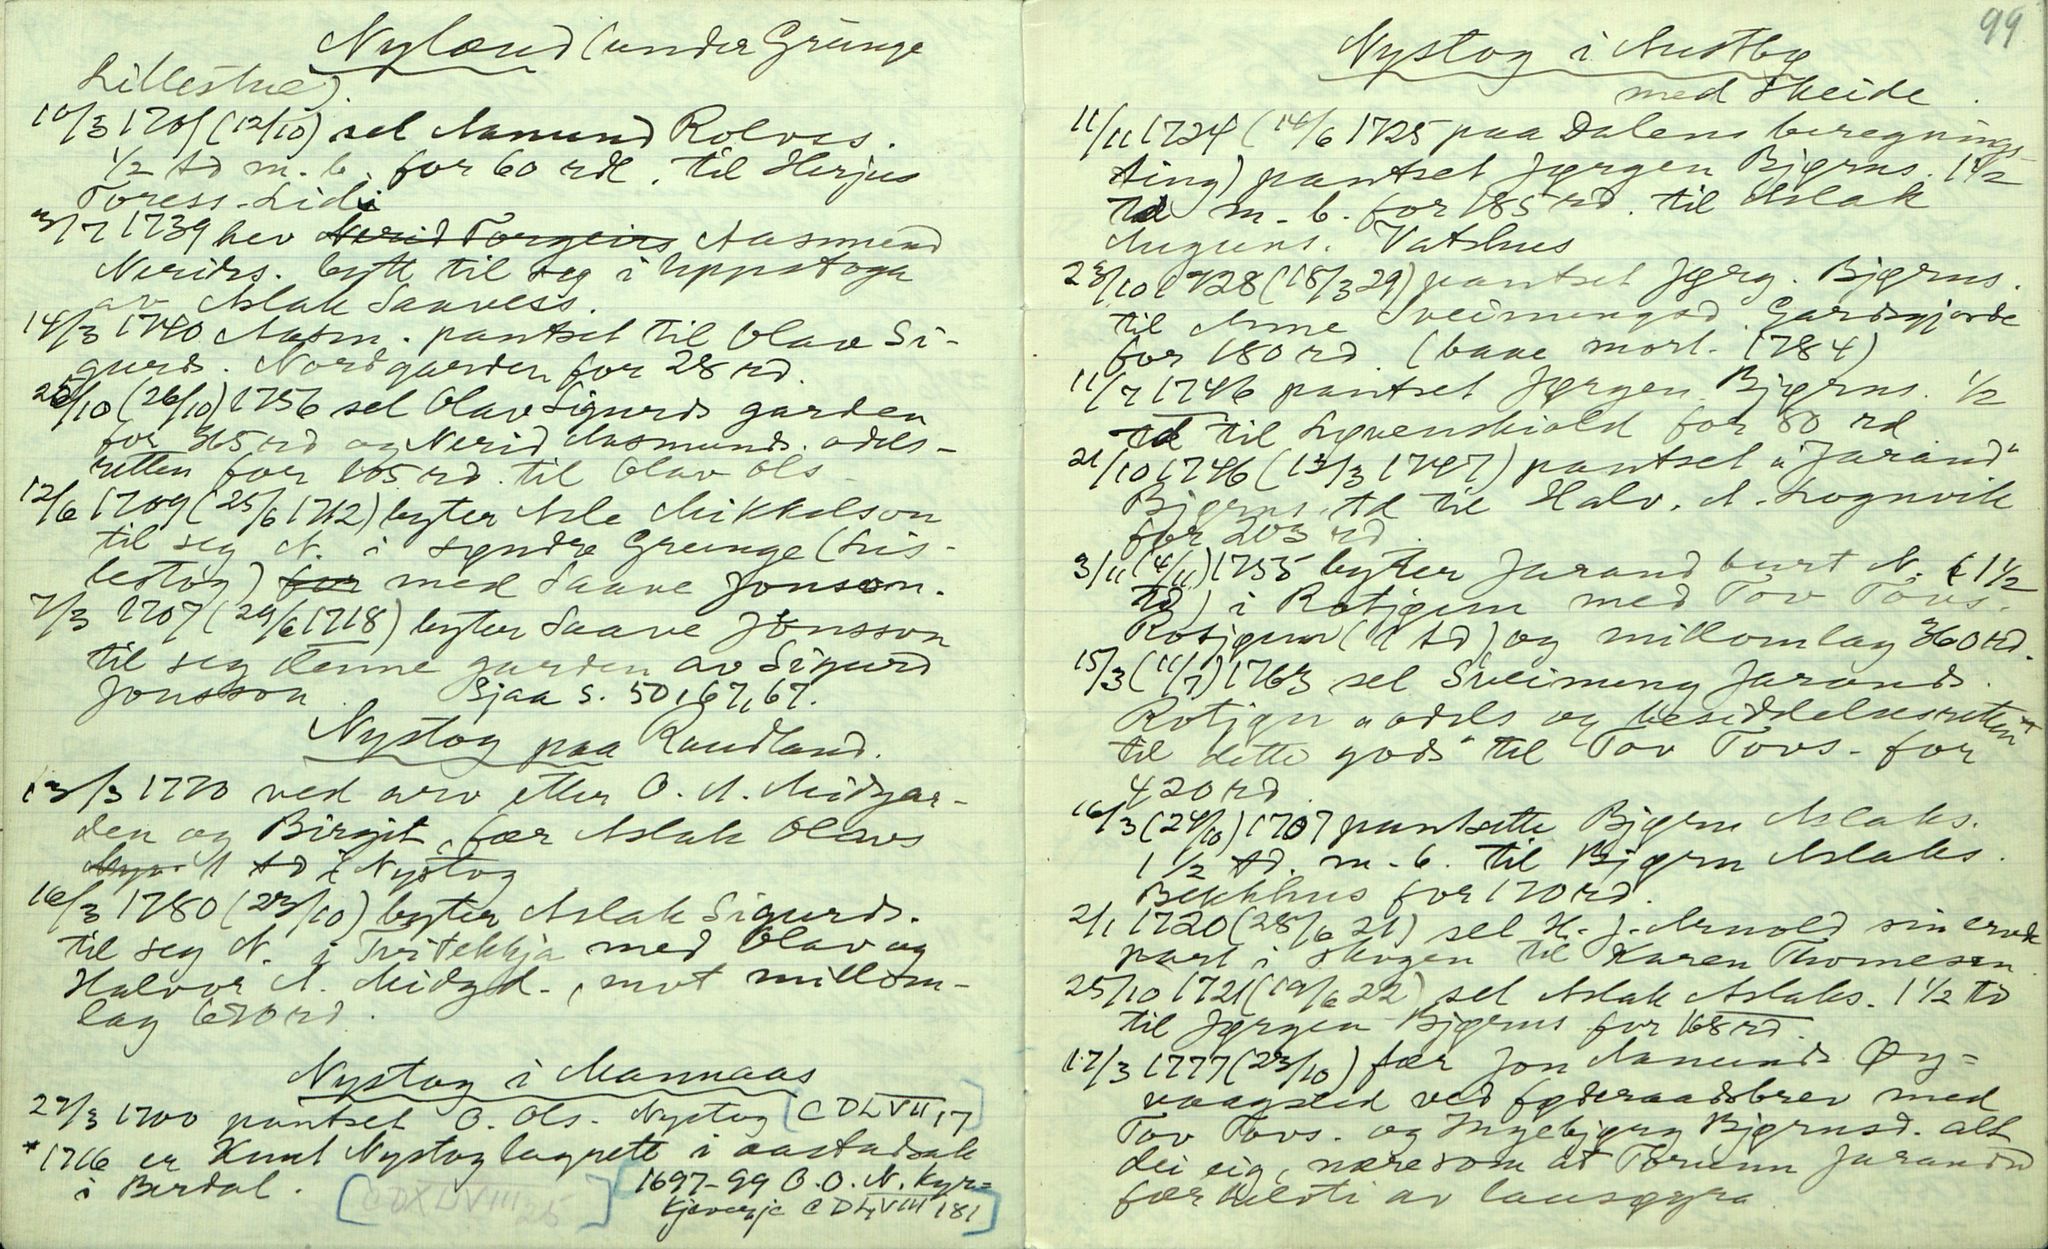 Nyland (under Grunge
Lillestue).
10/3 1701 (12/10) sel Aamund Rolvss.
1/2 td m. b. for 60 rdl. til Herjus
Toress. Lidi
3/7 1739 hev Nerid Torgeirs Aasmund
Nerids. bytt til seg i Uppstoga
av Aslak Saavess.
14/3 1740 Aasm. pantset til Olav Si-
gurds. Nordgarden for 28 rd.
25/10 (26/10) 1756 sel Olav Sigurds garden
for 365 rd og Nerid Aasmunds. odels-
retten for 105 rd. til Olav Ols
12/6 1709 (25/6 1712) byter Asle Mikkelson
til seg N. i syndre Grunge (Lis-
lestog) for med Saave Jonsson.
7/3 1707 (29/6 1718) byter Saave Jonsson
til seg denne garden av Sigurd
Jonsson. Sjaa s. 50, 67, 67.
Nystog paa Raudland.
13/3 1770 ved arv etter O. A. Midgar-
den og Birgit, fær Aslak Olavs
1 td i Nystog
16/3 1780 (23/10) byter Aslak Sigurds.
til seg N. i Tvitekkja med Olav og
Halvor A. Midgd., mot millom-
lag 620 rd.
Nystog i Mannaas
27/3 1700 pantset O. Ols. Nystog [CDLVII 17]
* 1716 er Knut Nystog lagrett i aastadsak
i Berdal. [CDXLVIII 25]
1697-99 O. O. N. kyr=
kjeverje CDLVIII 181]
99
Nystog i Austby
med Skeide.
11/11 1724 (14/6 1725 paa Dalens beregnings-
ting) pantset Jørgen Bjørns. 1 1/2
td m. b. for 185 rd. til Aslak
Auguns. Vatshus
23/10 1728 (18/3 29) pantset Jørg. Bjørns.
til Anne Sveinungsd. Gardsgjorde
for 180 rd (baae mort. 1784)
11/7 1746 pantset Jørgen Bjørns. 1/2
td til Løvenskiold for 80 rd
21/10 1746 (13/3 1747) pantset "Jarand"
Bjørns. td til Halv. A. Lognvik
for 203 rd.
3/11 (4/11) 1755 byter Jarand burt N. (1 1/2
td) i Rotjørn med Tov Tovs.
Rotjørn (1 td) og millomlag 360 rd.
15/3 (11/7) 1763 sel Sveinung Jarands.
Rotjøn "odels og besiddelsesretten
til dette gods" til Tov Tovs. for
420 rd.
16/3 (24/10) 1707 pantsette Bjørn Aslaks.
1 1/2 td. m. b. til Bjørn Aslaks.
Bekkhus for 170 rd.
2/1 1720 (28/6 21) sel H. J. Arnold sin arvde
part i skogen til Karen Thomesen
25/10 1721 (19/6 22) sel Aslak Aslaks. 1 1/2 td
til Jørgen Bjørns for 168 rd.
17/3 1777 (23/10) fær Jon Aamunds Øy=
vaagsted ved føderaadsbrev med
Tov Tovs. og Ingebjørg Bjørnsd. alt
dei eig, nære som at Torunn Jarandsd
fær helvti av lausøyra